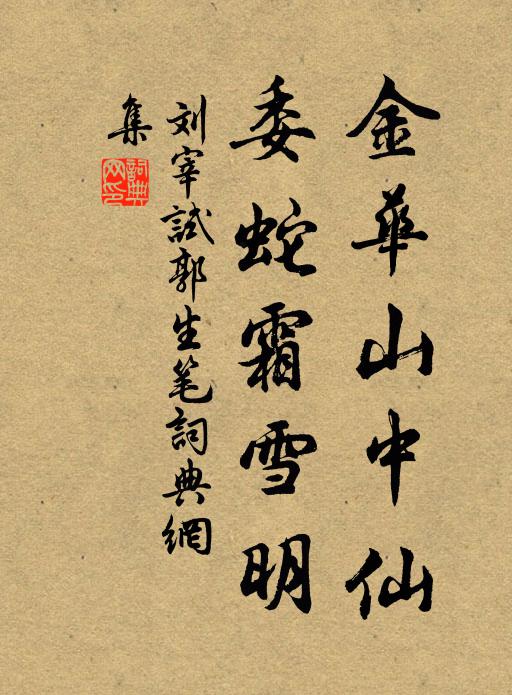 金華山中仙
委蛇霜雪明
刘宰試郭生笔詞典網
集
詞典
网印